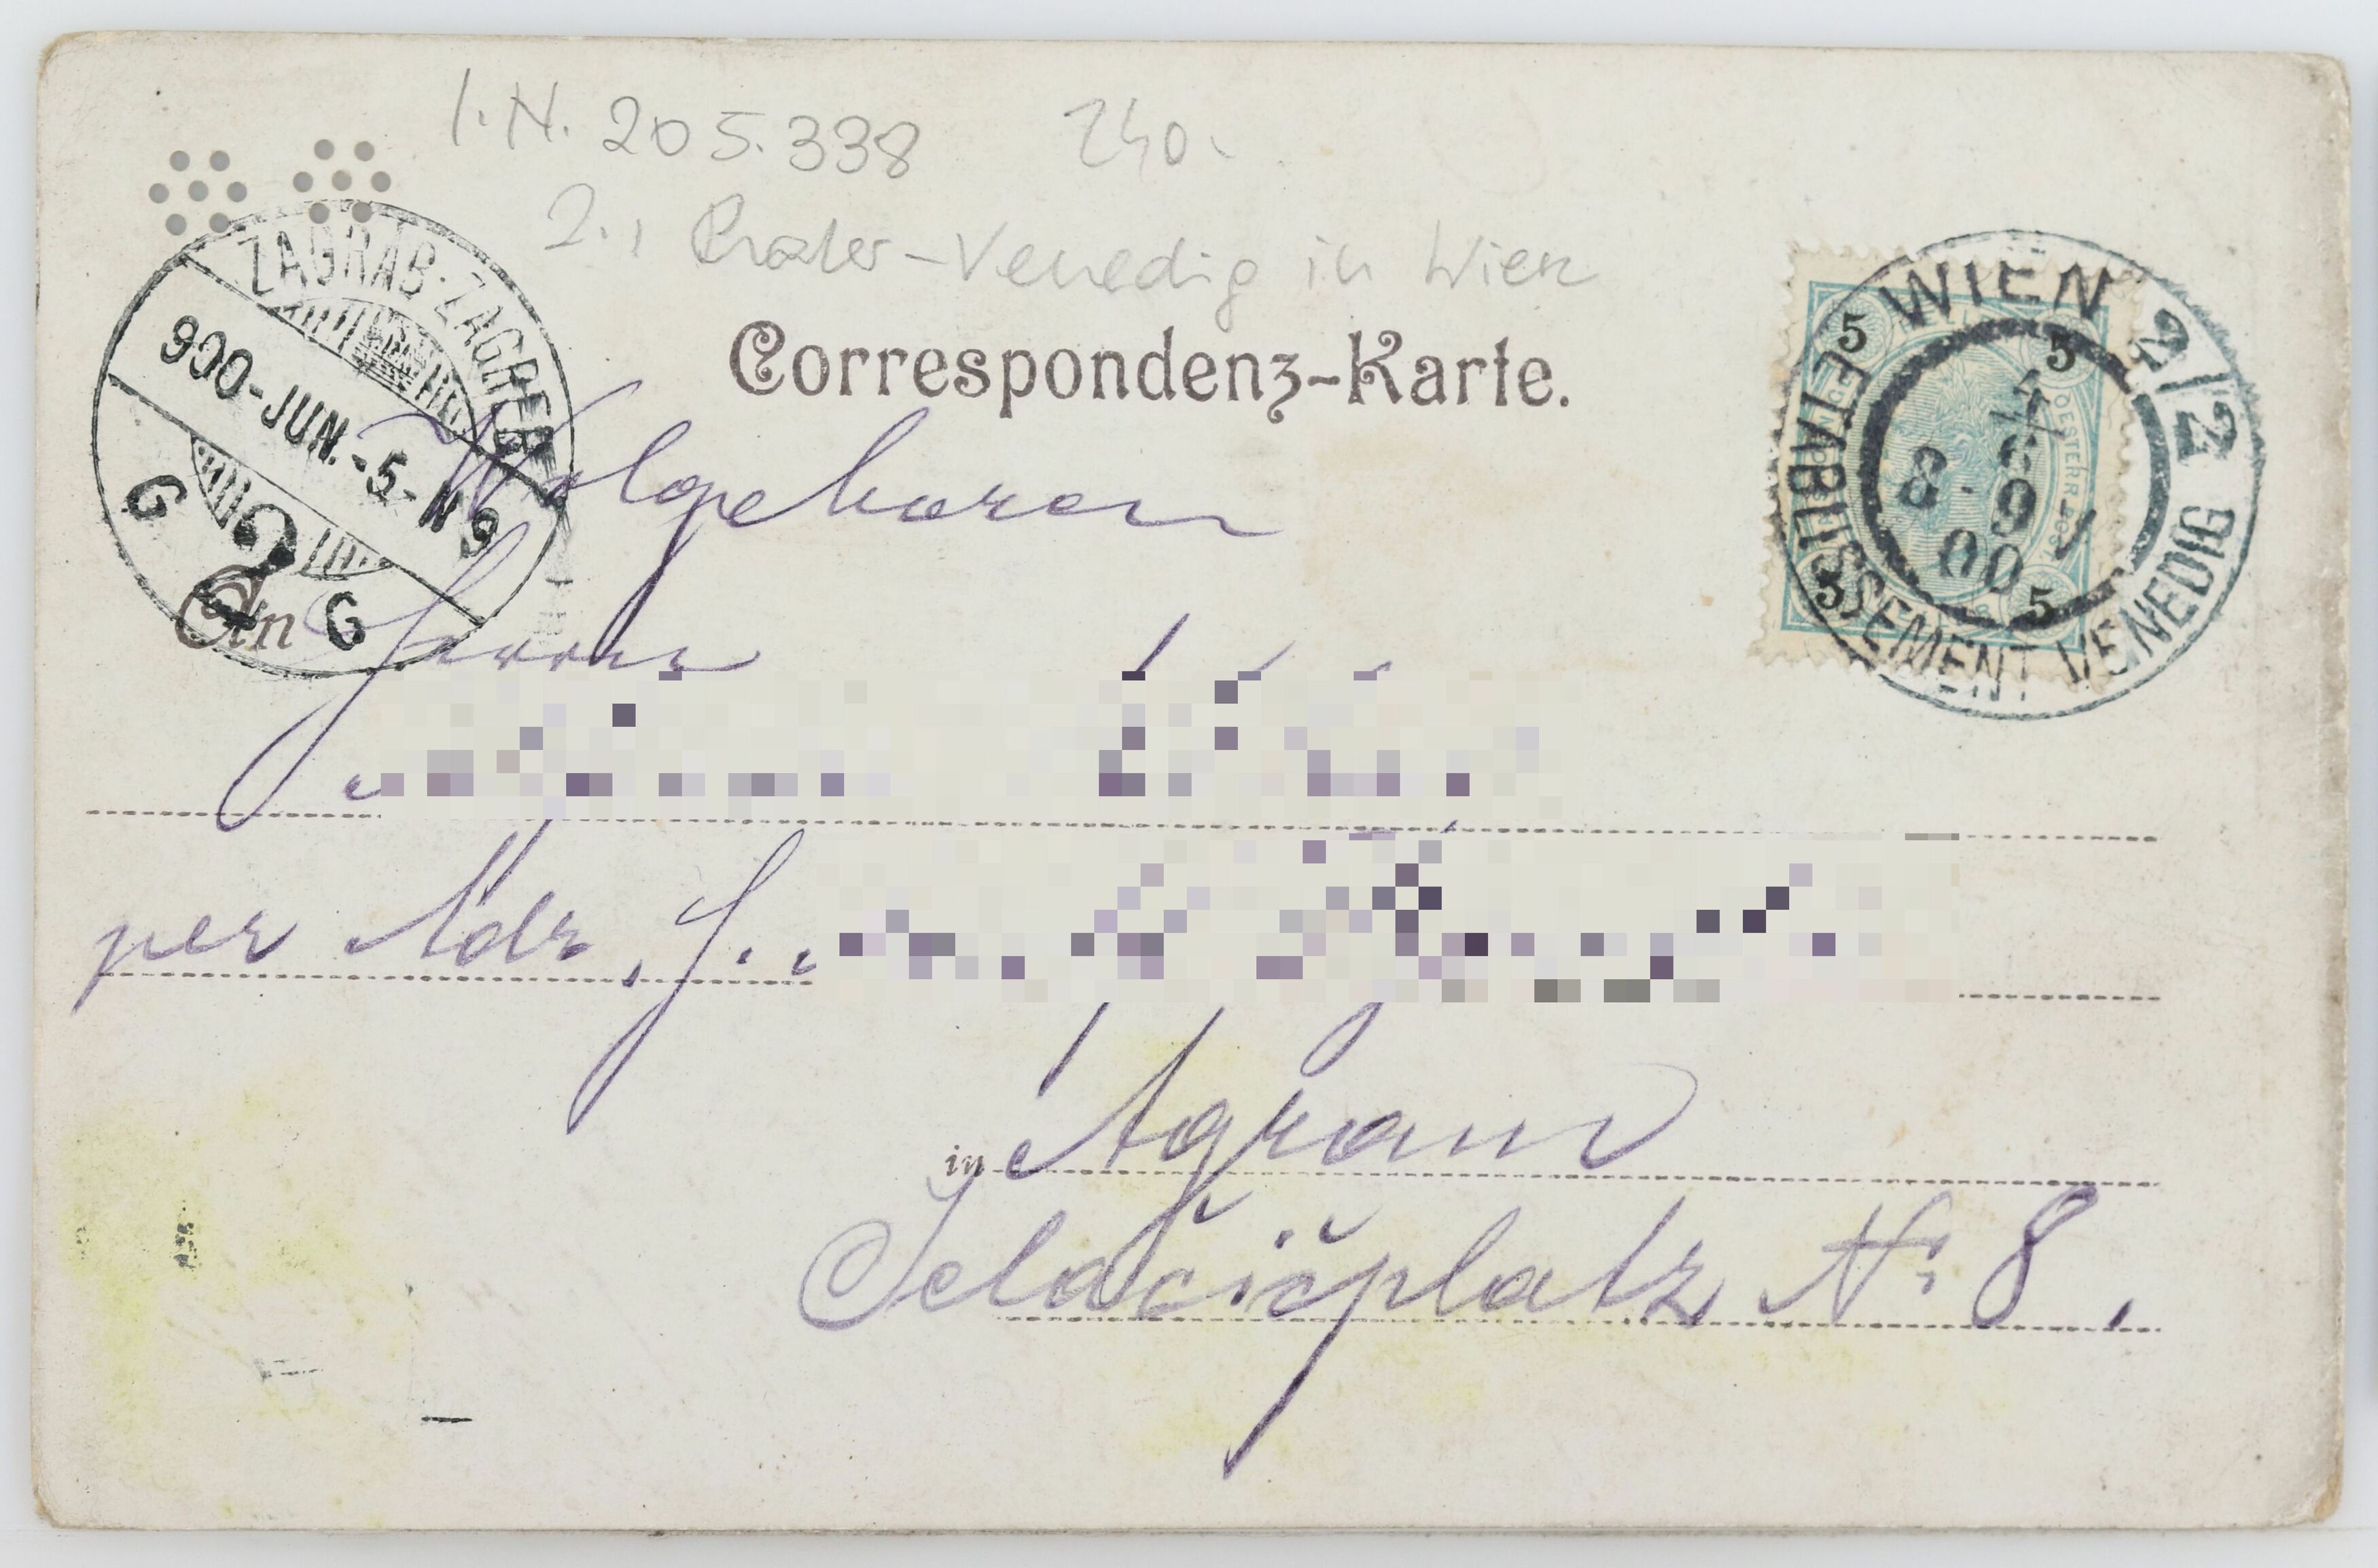 I.N. 205.338 240.-
2., Prater-Venedig in Wien
Correspondenz-Karte.
ZÁGRÁB·ZAGREB
900-JUN.-5-N9
G G
WIEN 2/2
ETABLISSEMENT VENEDIG
8.
00
5 5
5 5
Wolgeboren
An Herrn
per Adr. H.
in Agram
Jelačićplatz No 8.